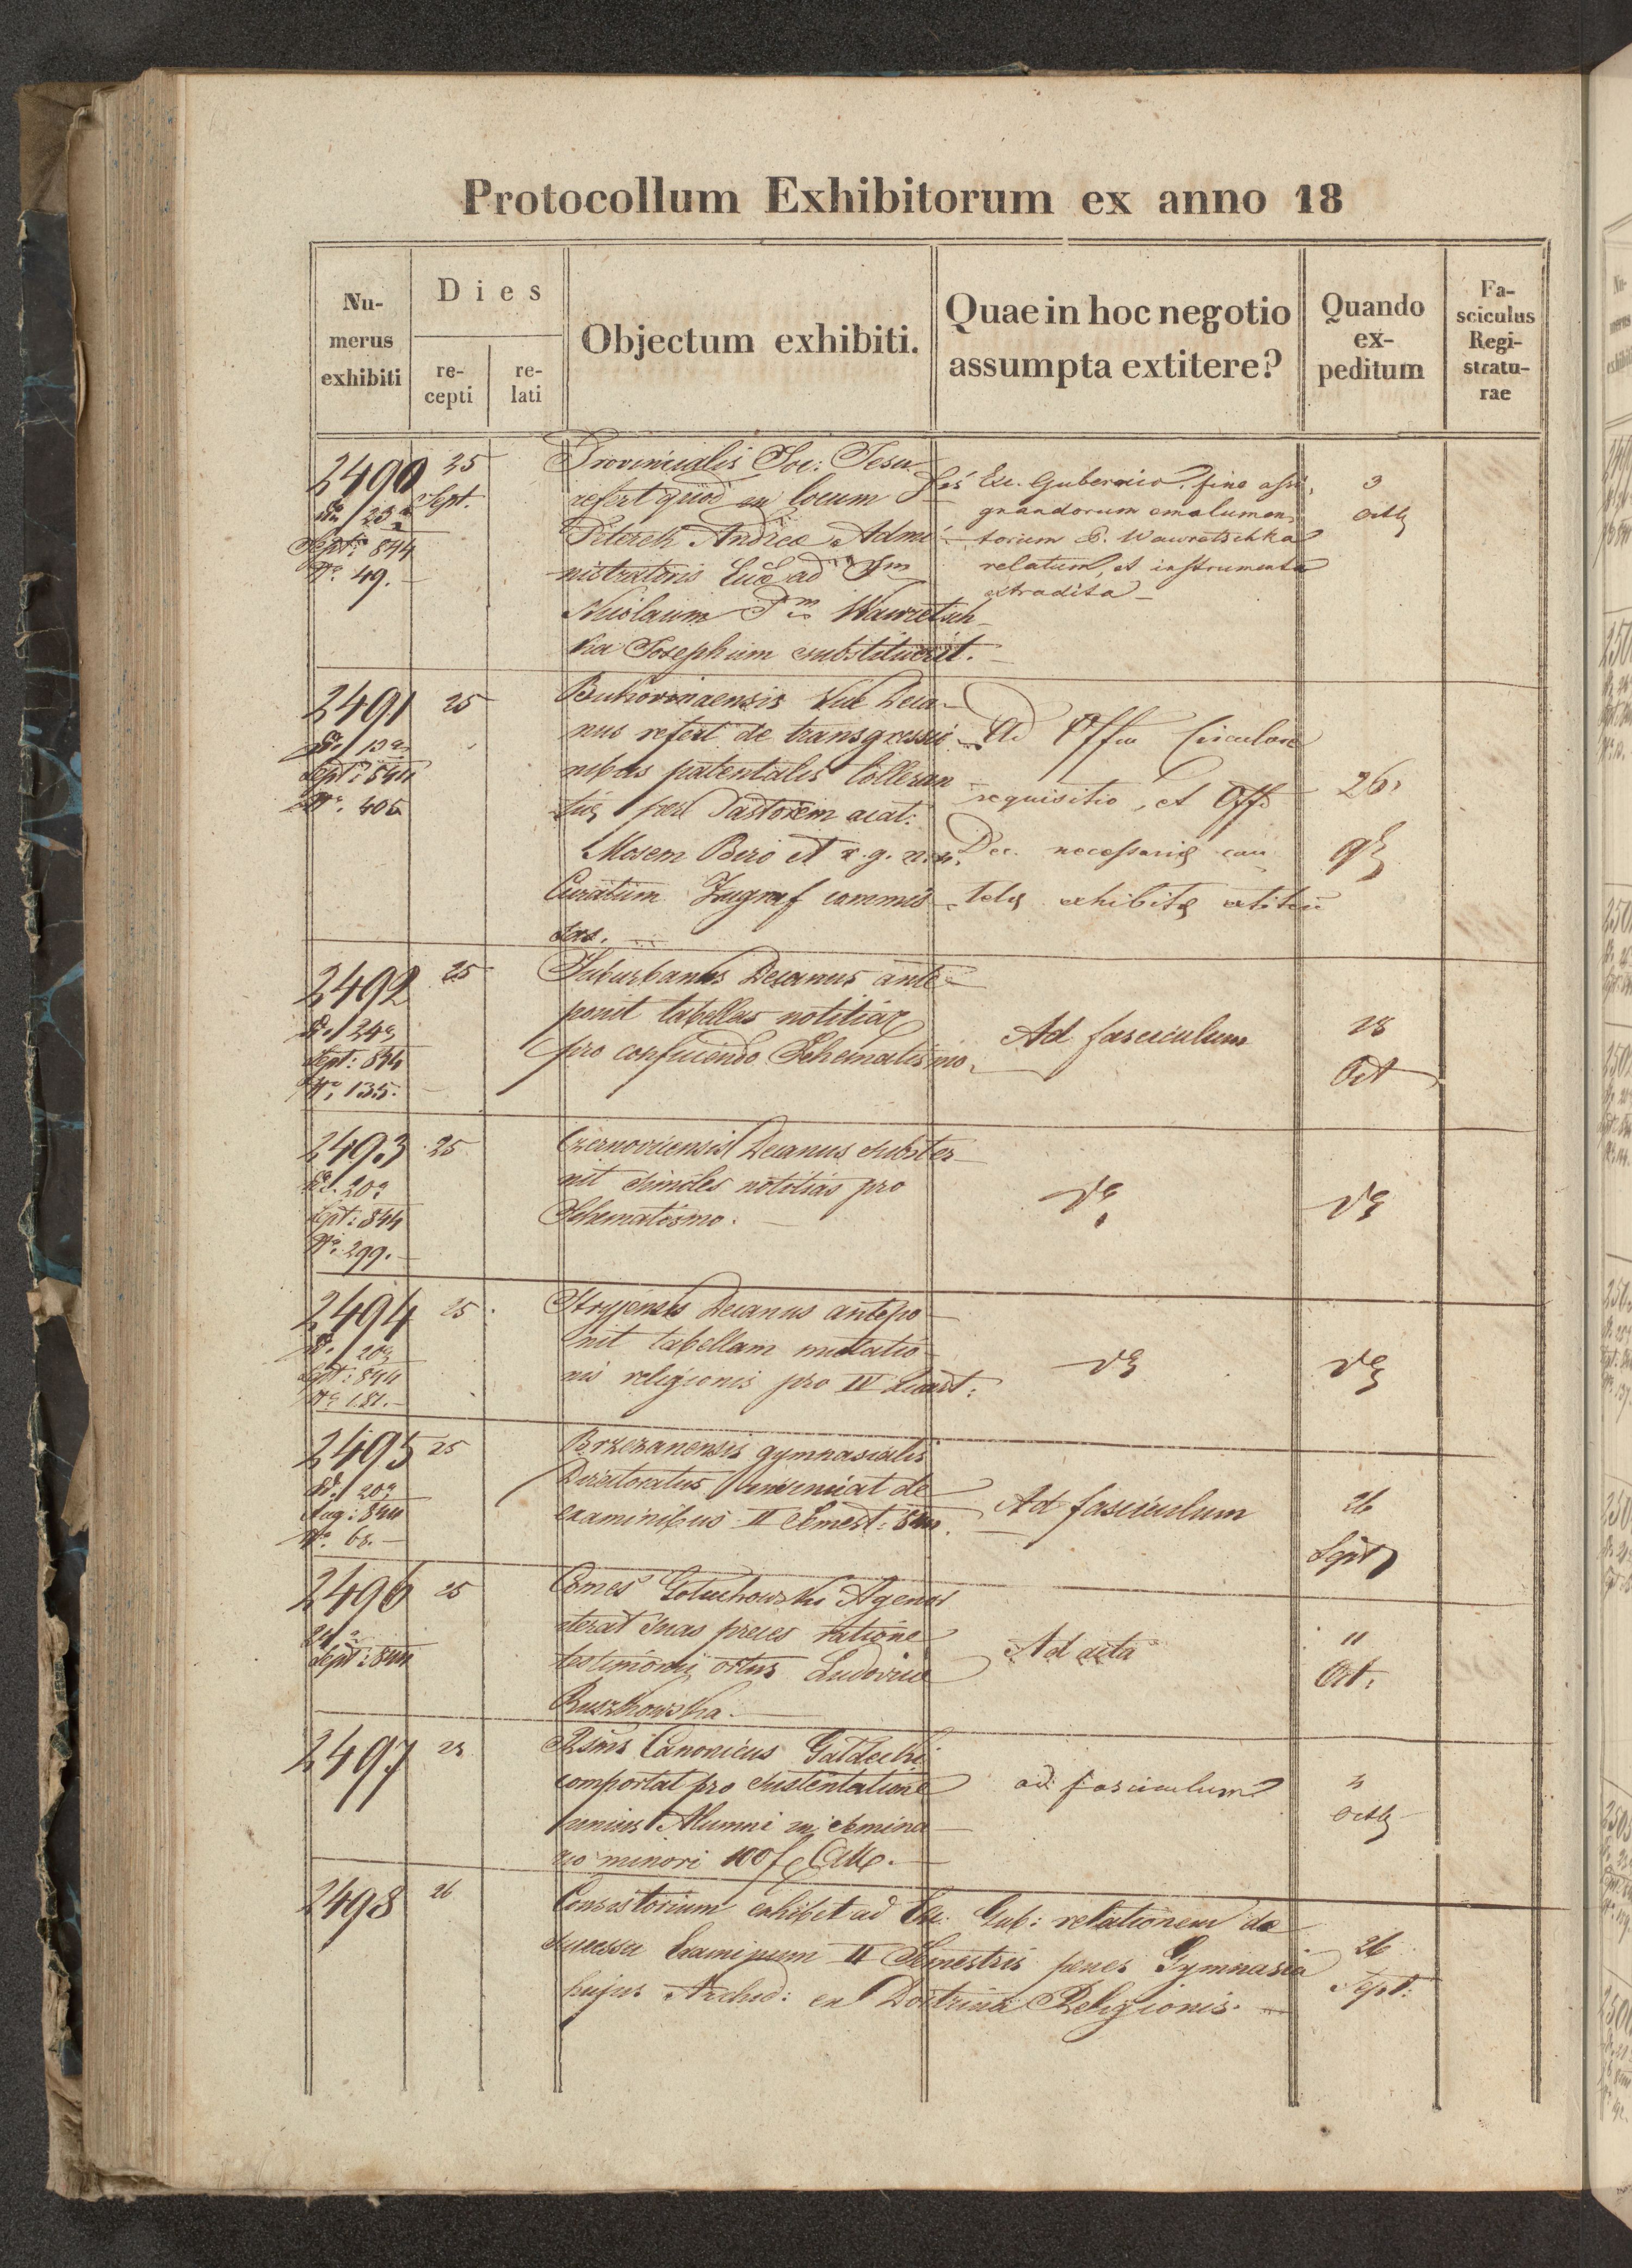 Protocollum Exhibitorum ex anno 18
Nu-
merus
exhibiti
Dies
re-
cepti
re-
lati
Objectum exhibiti.
Quae in hoc negotio
assumpta extitere?
Quando
ex-
peditum
Fa-
sciculus
Regi-
stratu-
rae
2490
25
Sept.
Sept: 844
No. 49.
Provincialis Soc: Jesu
refert quod in locum
Peterek Andreae Admi-
nistratoris ad
Nicolaum Wawretsch-
ka Josephum substituerit.
Exc. Gubernio fine assi-
gnandorum emolumen-
torum P. Wawretschka
relatum, et instrumenta
extradita
3
2491
25
Sept: 844
No. 405
Bukovinaensis Vice Deca-
nus refert de transgressio-
nibus patentalis tolleran-
per Pastorem acat:
Mosem Bero et r. g. n. u.
Curatum Zugraf commis-
sis.
Ad Offa Circulare
requisitio, et Off.
Dec. necessariae cau-
telae exhibitae
26
2492
25
24
Sept: 844
No. 135.
Suburbanus Decanus ante-
ponit tabellas notitiar
pro conficiendo Schematismo.
Ad fasciculum
Oct
2493
25
20
Sept: 844
No. 299.
Czernovicensis Decanus subster-
nit similes notitias pro
Schematismo.
2494
25
20
Sept: 844
No. 181.
Stryjensis Decanus antepo-
nit tabellam mutatio-
nis religionis pro IV Quart:
2495
25
20
Aug: 844
No. 68.
Brzezanensis gymnasialis
Directoratus de
examinibus II Semest: 844.
Ad fasciculum
26
Sept
2496
25
Sept: 844
Comes Goluchowski Agenor
iterat suas preces ratione
testimonii ortus Ludovicae
Ruszkowska.
Ad acta
11
Oct:
2497
25
Rsmus Canonicus Galdecki
comportat pro sustentatione
unius Alumni in semina-
rio minori 100 f CMe.
ad fasciculum
3
2498
26
Consistorium exhibet ad Exc. Gub: relationem de
successu Examinum II Semestris penes Gymnasia
hujus Archid: ex Doctrina Religionis.
26
Sept: